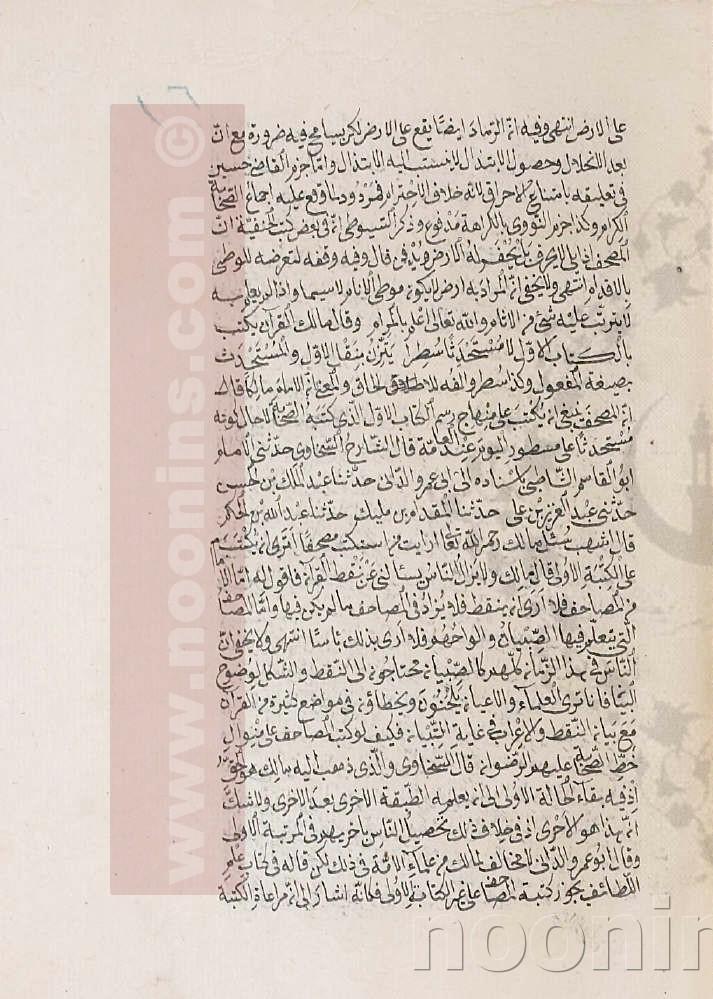 على الارض انتهى وفيه ان الرماد ايضا يقع على الارض لكن يسامح فيه ضرورة مع ان
بعد الانحلال وحصول الابتذال لا ينسب اليه الابتذال واما جزم القاضى حسين
فى تعليقه بامتناع الاحراق لانه خلاف الاحترام فمردود بما وقع عليه اجماع الصحابة
الكرام وكذا جزم النووى بالكراهة مدفوع وذكر السيوطى انه فى بعض كتب الحنفية ان
المصحف اذا بلى لا يحرق بل يحفر له الارض ويدفن قال وفيه وقفة لتعرضه للوطى
بالاقدام انتهى ولا يخفى ان المراد به ارض لا يكون موطى الانام لا سيما واذا لم يعلم به
لا يترتب عليه شئ من الاثام والله تعالى اعلم بالمرام وقال مالك القرآن يكتب
بالكتاب الاول لا مستحدثا سطرا بنقل الاول والمستحدث
بصيغة المفعول وكذا سطر والفه للاطلاق والمعنى ان الامام مالكا قال
ان المصحف ينبغى ان يكتب على منهاج رسم الكتاب الاول الذى كتبه الصحابة لا حال كونه
مستحدثا على مسطور اليوم عند العامة قال الشارح السخاوى حدثنى الامام
ابو القاسم الشاطبى باسناده الى ابى عمرو الدانى حدثنا عبد الملك بن الحسين
حدثنى عبد العزيز بن على حدثنا المقدام بن مليك حدثنا عبد الله بن الحكم
قال اشهب سئل مالك رحمه الله تعالى ارايت من استكتب مصحفا اترى ان يكتب
على الكتبة الاولى قال مالك ولا يزال الناس يسألنى عن نقط القرآن فاقول له اما الامام
من المصاحف فلا ارى ان ينقط فلا يزاد فى المصاحف ما لم يكن فيها واما المصاحف
التى يتعلم فيها الصبيان والواحهم فلا ارى بذلك باسا انتهى ولا يخفى ان
الناس فى هذا الزمان كلهم كالصبيان محتاجون الى النقط والشكل لوضوح
البيان فانا نرى العلماء والاعيان يلحنون ويخطاؤن فى مواضع كثيرة من القرآن
مع بيان النقط والاعراب فى غاية التبيان فكيف لو كتب المصاحف على منوال
خط الصحابة عليهم الرضوان قال السخاوى والذى ذهب اليه مالك هو الحق
اذ فيه بقاء الحالة الاولى الى ان يعلمه الطبقة الاخرى بعد الاخرى ولا شك
ان هذا هو الاحرى اذ فى خلاف ذلك تجهيل الناس باخريهم فى المرتبة الاولى
وقال ابو عمرو الدانى لا مخالف لمالك من علماء الامة فى ذلك لكن قاله فى كتاب علم
اللطائف يجوز كتبة المصاحف على غير الكتابة الاولى فكانه اشار الى ان مراعاة الكتبة
www.noonins.com ©
noonin